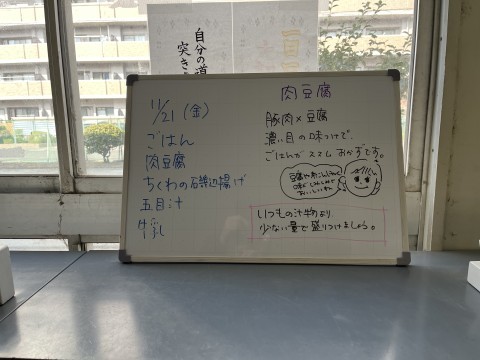 自分の道
突き
11/21(金)
ごはん
肉豆腐
ちくわの磯辺揚げ
五目汁
牛乳
肉豆腐
豚肉×豆腐
濃い目の味つけで、
ごはんがススムおかずです。
いつもの汁物より
少ない量で盛りつけましょう。